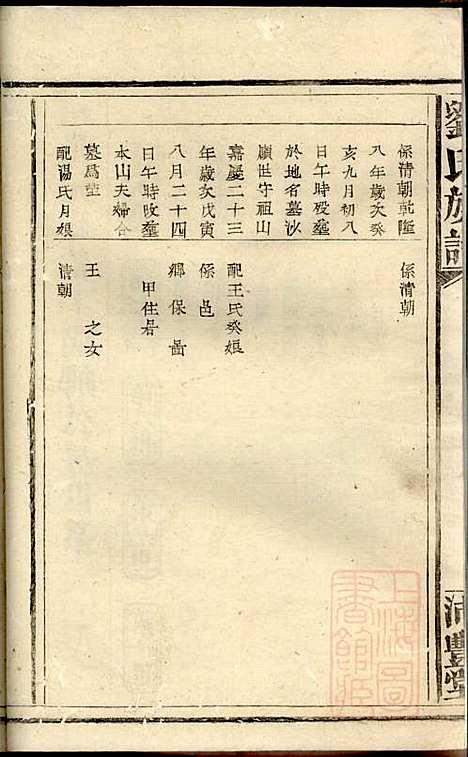 劉氏族譜
沛豐堂
係清朝乾隆
八年歲次癸
亥九月初八
日午時歿塟
於地名墓沙
願世守祖山
嘉慶二十三
年歲次戊寅
八月二十四
日午時改塟
本山夫婦合
墓爲塋
配湯氏月娘
係清朝
配王氏癸娘
係邑
鄉保啚
甲住居
王 之女
清朝
上海圖
書館